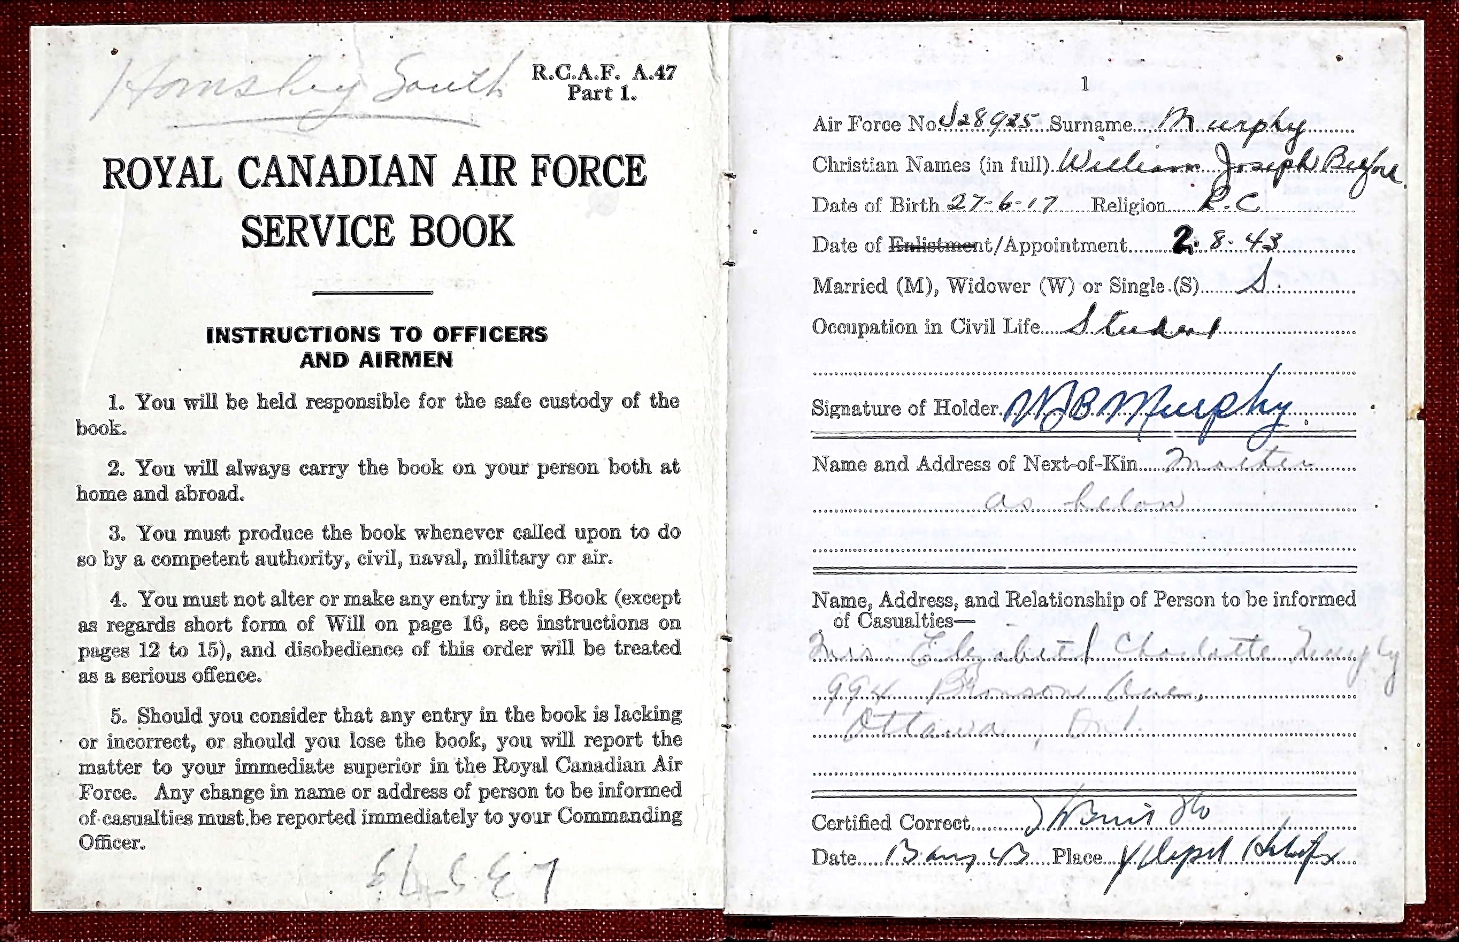 Hornsby South
R.C.A.F. A.47
Part 1.
ROYAL CANADIAN AIR FORCE
SERVICE BOOK
INSTRUCTIONS TO OFFICERS
AND AIRMEN
1. You will be held responsible for the safe custody of the
book.
2. You will always carry the book on your person both at
home and abroad.
3. You must produce the book whenever called upon to do
so by a competent authority, civil, naval, military or air.
4. You must not alter or make any entry in this Book (except
as regards short form of Will on page 16, see instructions on
pages 12 to 15), and disobedience of this order will be treated
as a serious offence.
5. Should you consider that any entry in the book is lacking
or incorrect, or should you lose the book, you will report the
matter to your immediate superior in the Royal Canadian Air
Force. Any change in name or address of person to be informed
of casualties must be reported immediately to your Commanding
Officer.
1
Air Force No. J28925 Surname Murphy
Christian Names (in full) William Joseph
Date of Birth 27-6-17 Religion R.C.
Date of Enlistment/Appointment 2.8.43
Married (M), Widower (W) or Single (S) S.
Occupation in Civil Life Student
Signature of Holder WJB Murphy.
Name and Address of Next-of-Kin Mother
as below
Name, Address, and Relationship of Person to be informed
of Casualties—
Mrs Elizabeth Charlotte Murphy
994 Bronson Ave.,
Ottawa, Ont.
Certified Correct
Date 13 aug 43 Place Y Depot Halifax